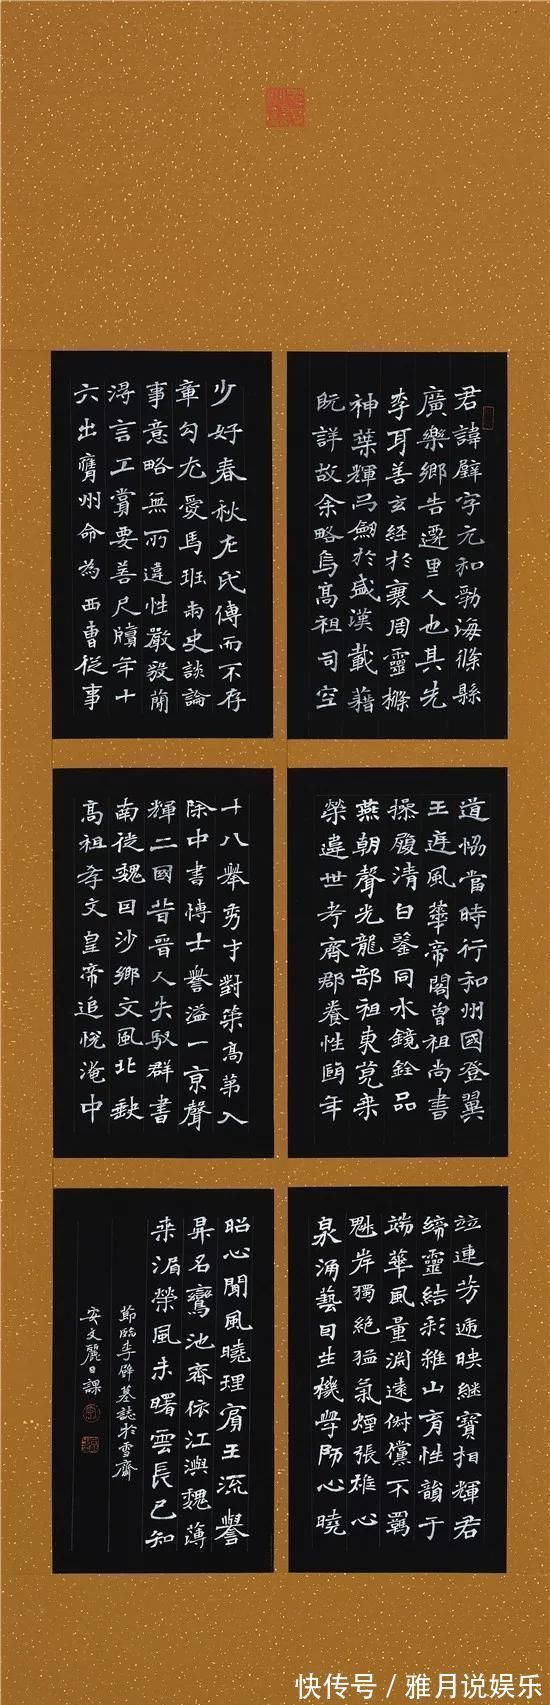 君諱璧字元和勃海條縣
廣樂鄉吉遷里人也其先
李耳著玄經於衰周靈樞
神葉輝弓劍於盛漢載籍
既詳故余略焉高祖司空
道協當時行和州國登翼
王庭風華帝閣曾祖尚書
操履清白鑒同水鏡銓品
燕朝聲光龍部祖東莞乘
榮違世考齊郡養性頤年
竝連芳遞映繼寶相輝君
締靈結彩維山育性韻于
端華風量淵遠倜儻不羈
魁岸獨絕猛氣煙張雄心
泉涌藝因生機學師心曉
少好春秋左氏傳而不存
章句尤愛馬班兩史談論
事意略無所違性嚴毅簡
得言工賞要善尺牘年十
六出膺州命為西曹従事
十八舉秀才對策高第入
除中書博士譽溢一京聲
輝二國昔晉人失馭群書
南從魏因沙鄉文風北缺
高祖孝文皇帝追悅淹中
昭心聞風曉理賓王流譽
昇名鸞池齊依江澳魏薄
来湄榮風未曙雲長已知
節臨李璧墓誌於雪齋
安文麗日課
快传号/雅月说娱乐